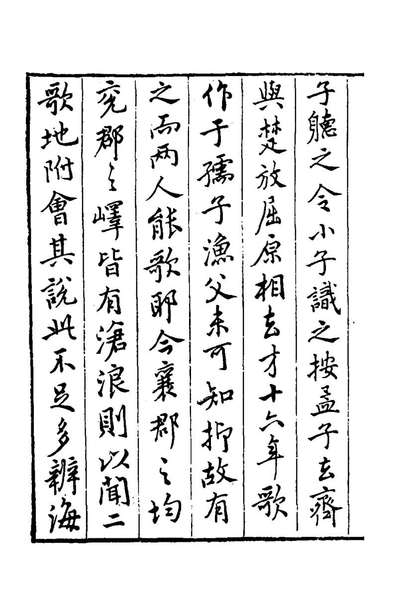 子聽之令小子識之按孟子去齊
與楚放屈原相去才十六年歌
作于孺子漁父未可知抑故有
之而两人能歌耶今襄郡之均
兖郡之嶧皆有滄浪則以聞二
歌地附會其說此不足多辨海